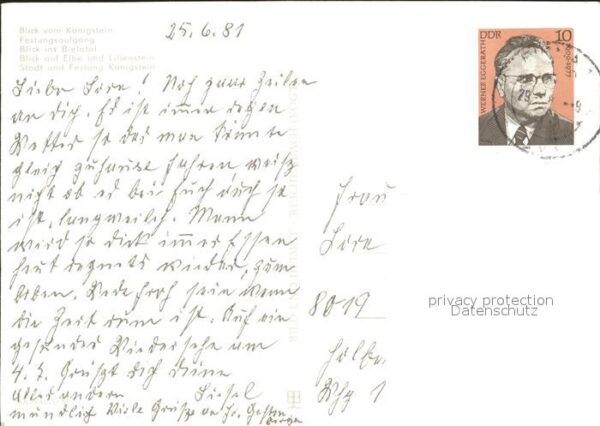 25.6.81
Blick vom Königstein
Festungsaufgang
Blick ins Bielatal
Blick auf Elbe und Lilienstein
Stadt und Festung Königstein
Liebe Lore! Noch paar Zeilen
an dich. Es ist immer Regen
Wetter so das man könnte
gleich zuhause fahren weiß
nicht ob es bei Euch auch so
ist, langweilich. Mann
wird so dick immer Essen
heut regnets wieder, zum
Werde froh sein wenn
die Zeit rum ist. Auf ein
gesundes Wiedersehn am
4.7. Grüßt dich deine
Liesel
alles andere
mündlich Viele Grüße an
Frau
Lore
8019
1
DDR 10
WERNER EGGERATH
1900-1977
privacy protection
Datenschutz